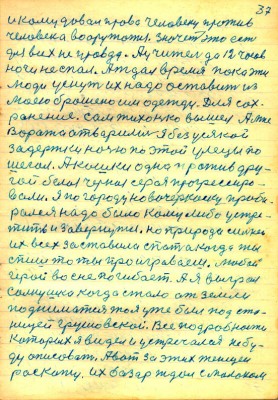 37
и кому давал право человеку против
человека вооружатся. Значит это ест
у них не правда. А учител до 12 часов
ночи не спал. А ждал время пока эти
люди уснут их надо оставит из
моего брошено им одежду. Для сох-
ранение. Сам тихонко вышел А мне
Ворота отварили Я без усякой
задержки ночю по этой улецы по
шегал. А кошки одна против дру-
гой белая черная серая прогрессиро-
вали. Я по городу новочеркаску проби-
рался надо было кому либо устре-
тить и завернути. но природа силная
их всех заставила спат а когда ты
спиш то ты проиграваеш. любой
герой во сне погибает. А я выграл
самушко когда стало от земли
подниматся то я уже был под ста-
ницей Грушовской. Все подробности
которых я видел и устречался не бу-
ду описоват. А вот за этих женщен
роскажу. их базар ждал с молоком